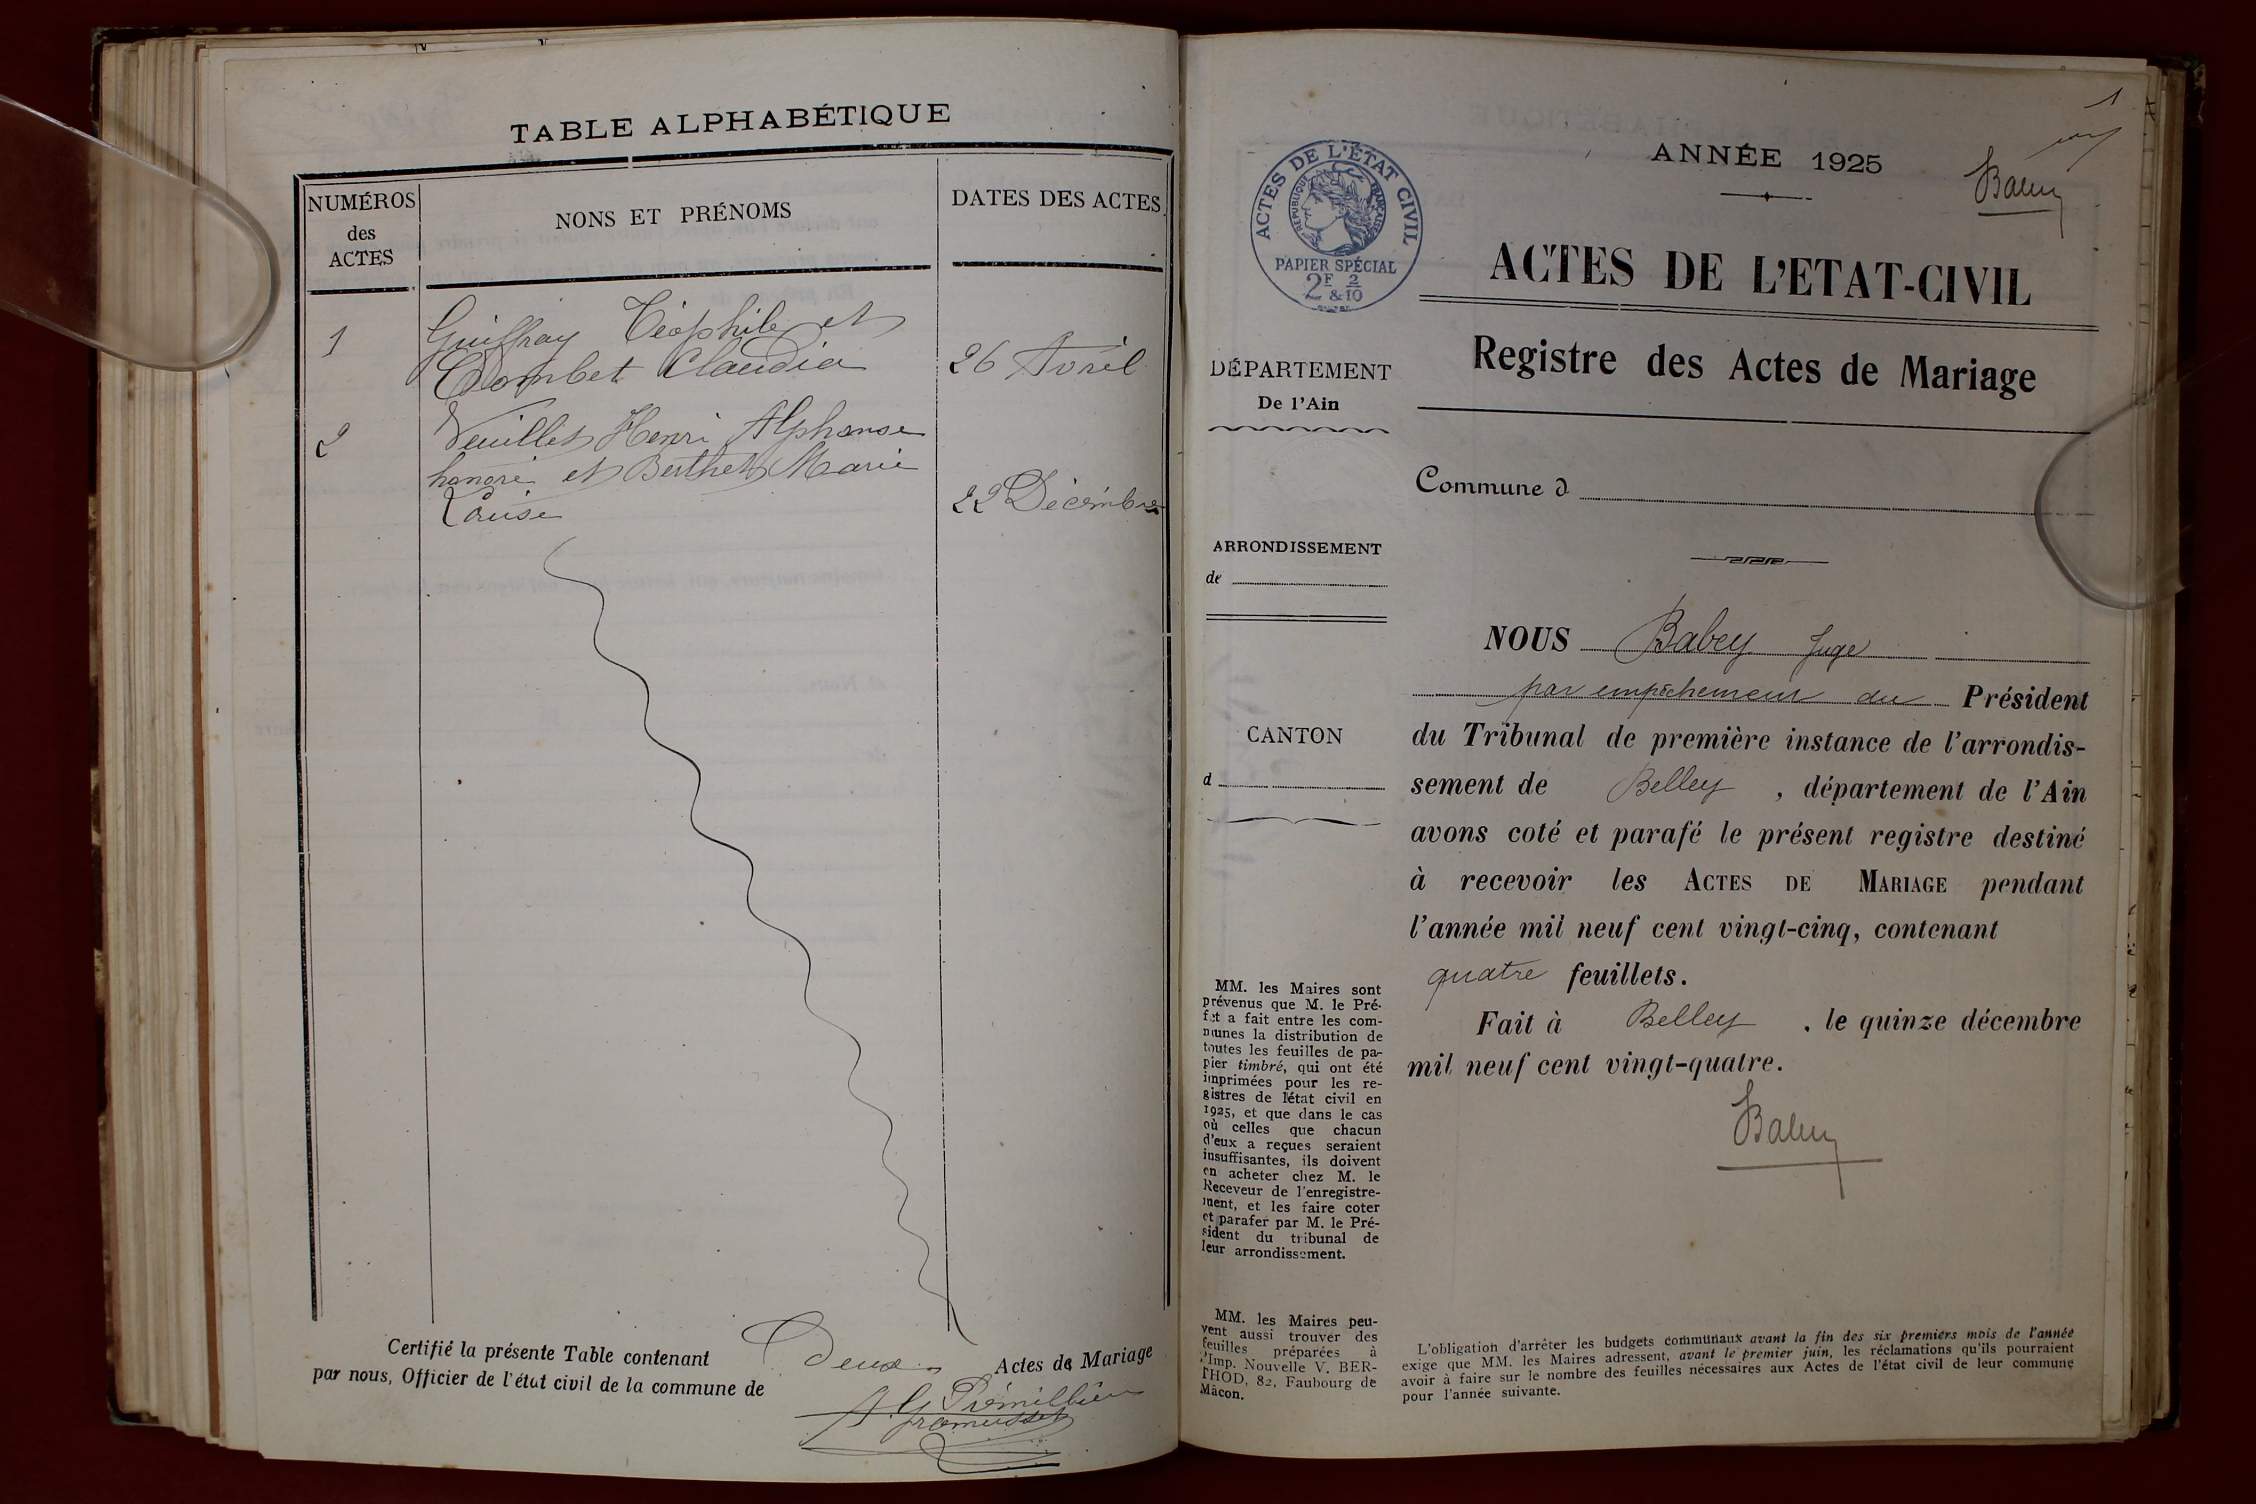 TABLE ALPHABÉTIQUE
NUMÉROS
des
ACTES
NONS ET PRÉNOMS
DATES DES ACTES
1
Guiffray Téophile et
Combet Claudia
26 Avril
2
Veuillet Henri Alphonse
honoré et Berthet Marie
Louise
22 Décembre
Certifié la présente Table contenant Deux Actes de Mariage
par nous, Officier de l'état civil de la commune de
Prémillieu
1
ANNÉE 1925
Babey
ACTES DE L'ÉTAT CIVIL
RÉPUBLIQUE FRANÇAISE
PAPIER SPÉCIAL
2F & 2/10
ACTES DE L'ETAT-CIVIL
Registre des Actes de Mariage
DÉPARTEMENT
De l'Ain
Commune d
ARRONDISSEMENT
de
CANTON
d
NOUS Babey Juge
par empêchement du Président
du Tribunal de première instance de l'arrondis-
sement de Belley, département de l'Ain
avons coté et parafé le présent registre destiné
à recevoir les ACTES DE MARIAGE pendant
l'année mil neuf cent vingt-cinq, contenant
quatre feuillets.
Fait à Belley, le quinze décembre
mil neuf cent vingt-quatre.
Babey
MM. les Maires sont
prévenus que M. le Pré-
fet a fait entre les com-
munes la distribution de
toutes les feuilles de pa-
pier timbré, qui ont été
imprimées pour les re-
gistres de l'état civil en
1925, et que dans le cas
où celles que chacun
d'eux a reçues seraient
insuffisantes, ils doivent
en acheter chez M. le
Receveur de l'enregistre-
ment, et les faire coter
et parafer par M. le Pré-
sident du tribunal de
leur arrondissement.
MM. les Maires peu-
vent aussi trouver des
feuilles préparées à
l'Imp. Nouvelle V. BER-
THOD, 82, Faubourg de
Mâcon.
L'obligation d'arrêter les budgets communaux avant la fin des six premiers mois de l'année
exige que MM. les Maires adressent, avant le premier juin, les réclamations qu'ils pourraient
avoir à faire sur le nombre des feuilles nécessaires aux Actes de l'état civil de leur commune
pour l'année suivante.